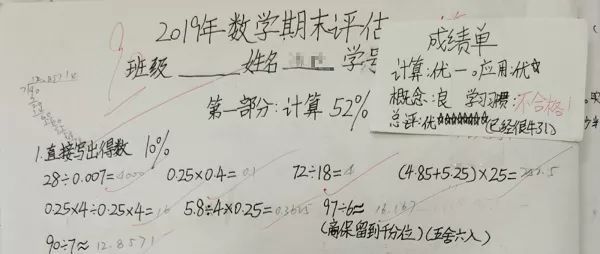 2019年数学期末评估
班级 姓名 学号
第一部分:计算 52%
成绩单
计算:优一。应用:优☆
概念:良 学习习惯:不合格!
总评:优☆☆☆☆☆☆☆(已经很牛引)
1.直接写出得数 10%
28÷0.007=4000 0.25×0.4=0.1 72÷18=4 (4.85+5.25)×25=252.5
0.25×4÷0.25×4=16 5.8÷4×0.25=0.3625 97÷6≈16.167
(需保留到千分位)(五舍六入)
90÷7≈12.8571